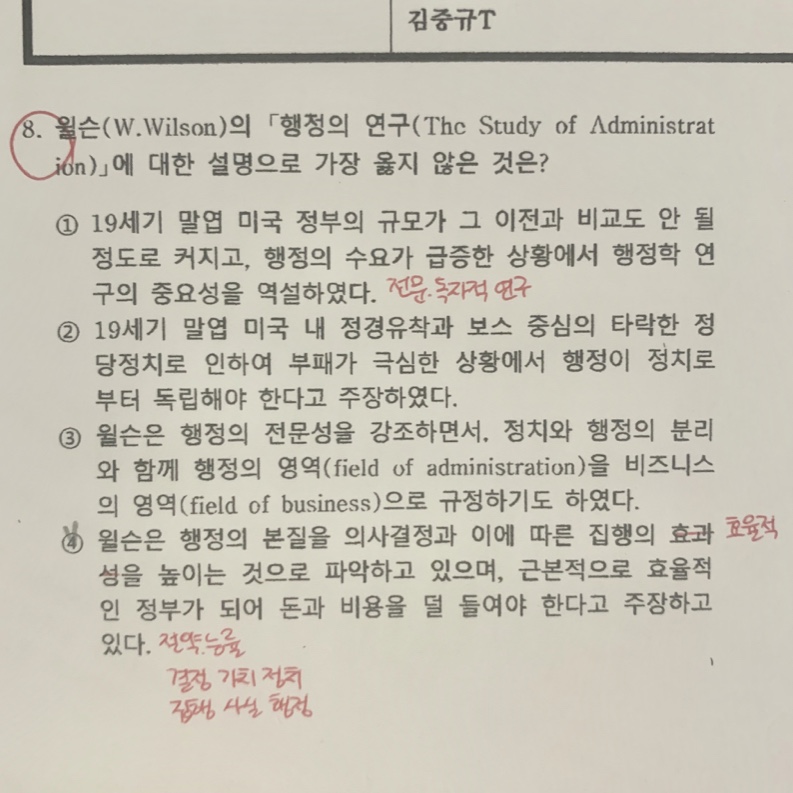 김중규T
8. 윌슨(W.Wilson)의 「행정의 연구(The Study of Administrat
ion)」에 대한 설명으로 가장 옳지 않은 것은?
① 19세기 말엽 미국 정부의 규모가 그 이전과 비교도 안 될
정도로 커지고, 행정의 수요가 급증한 상황에서 행정학 연
구의 중요성을 역설하였다. 전문.독자적 연구
② 19세기 말엽 미국 내 정경유착과 보스 중심의 타락한 정
당정치로 인하여 부패가 극심한 상황에서 행정이 정치로
부터 독립해야 한다고 주장하였다.
③ 윌슨은 행정의 전문성을 강조하면서, 정치와 행정의 분리
와 함께 행정의 영역(field of administration)을 비즈니스
의 영역(field of business)으로 규정하기도 하였다.
④ 윌슨은 행정의 본질을 의사결정과 이에 따른 집행의 효과 효율적
성을 높이는 것으로 파악하고 있으며, 근본적으로 효율적
인 정부가 되어 돈과 비용을 덜 들여야 한다고 주장하고
있다. 절약.능률
결정 가치 정치
집행 사실 행정